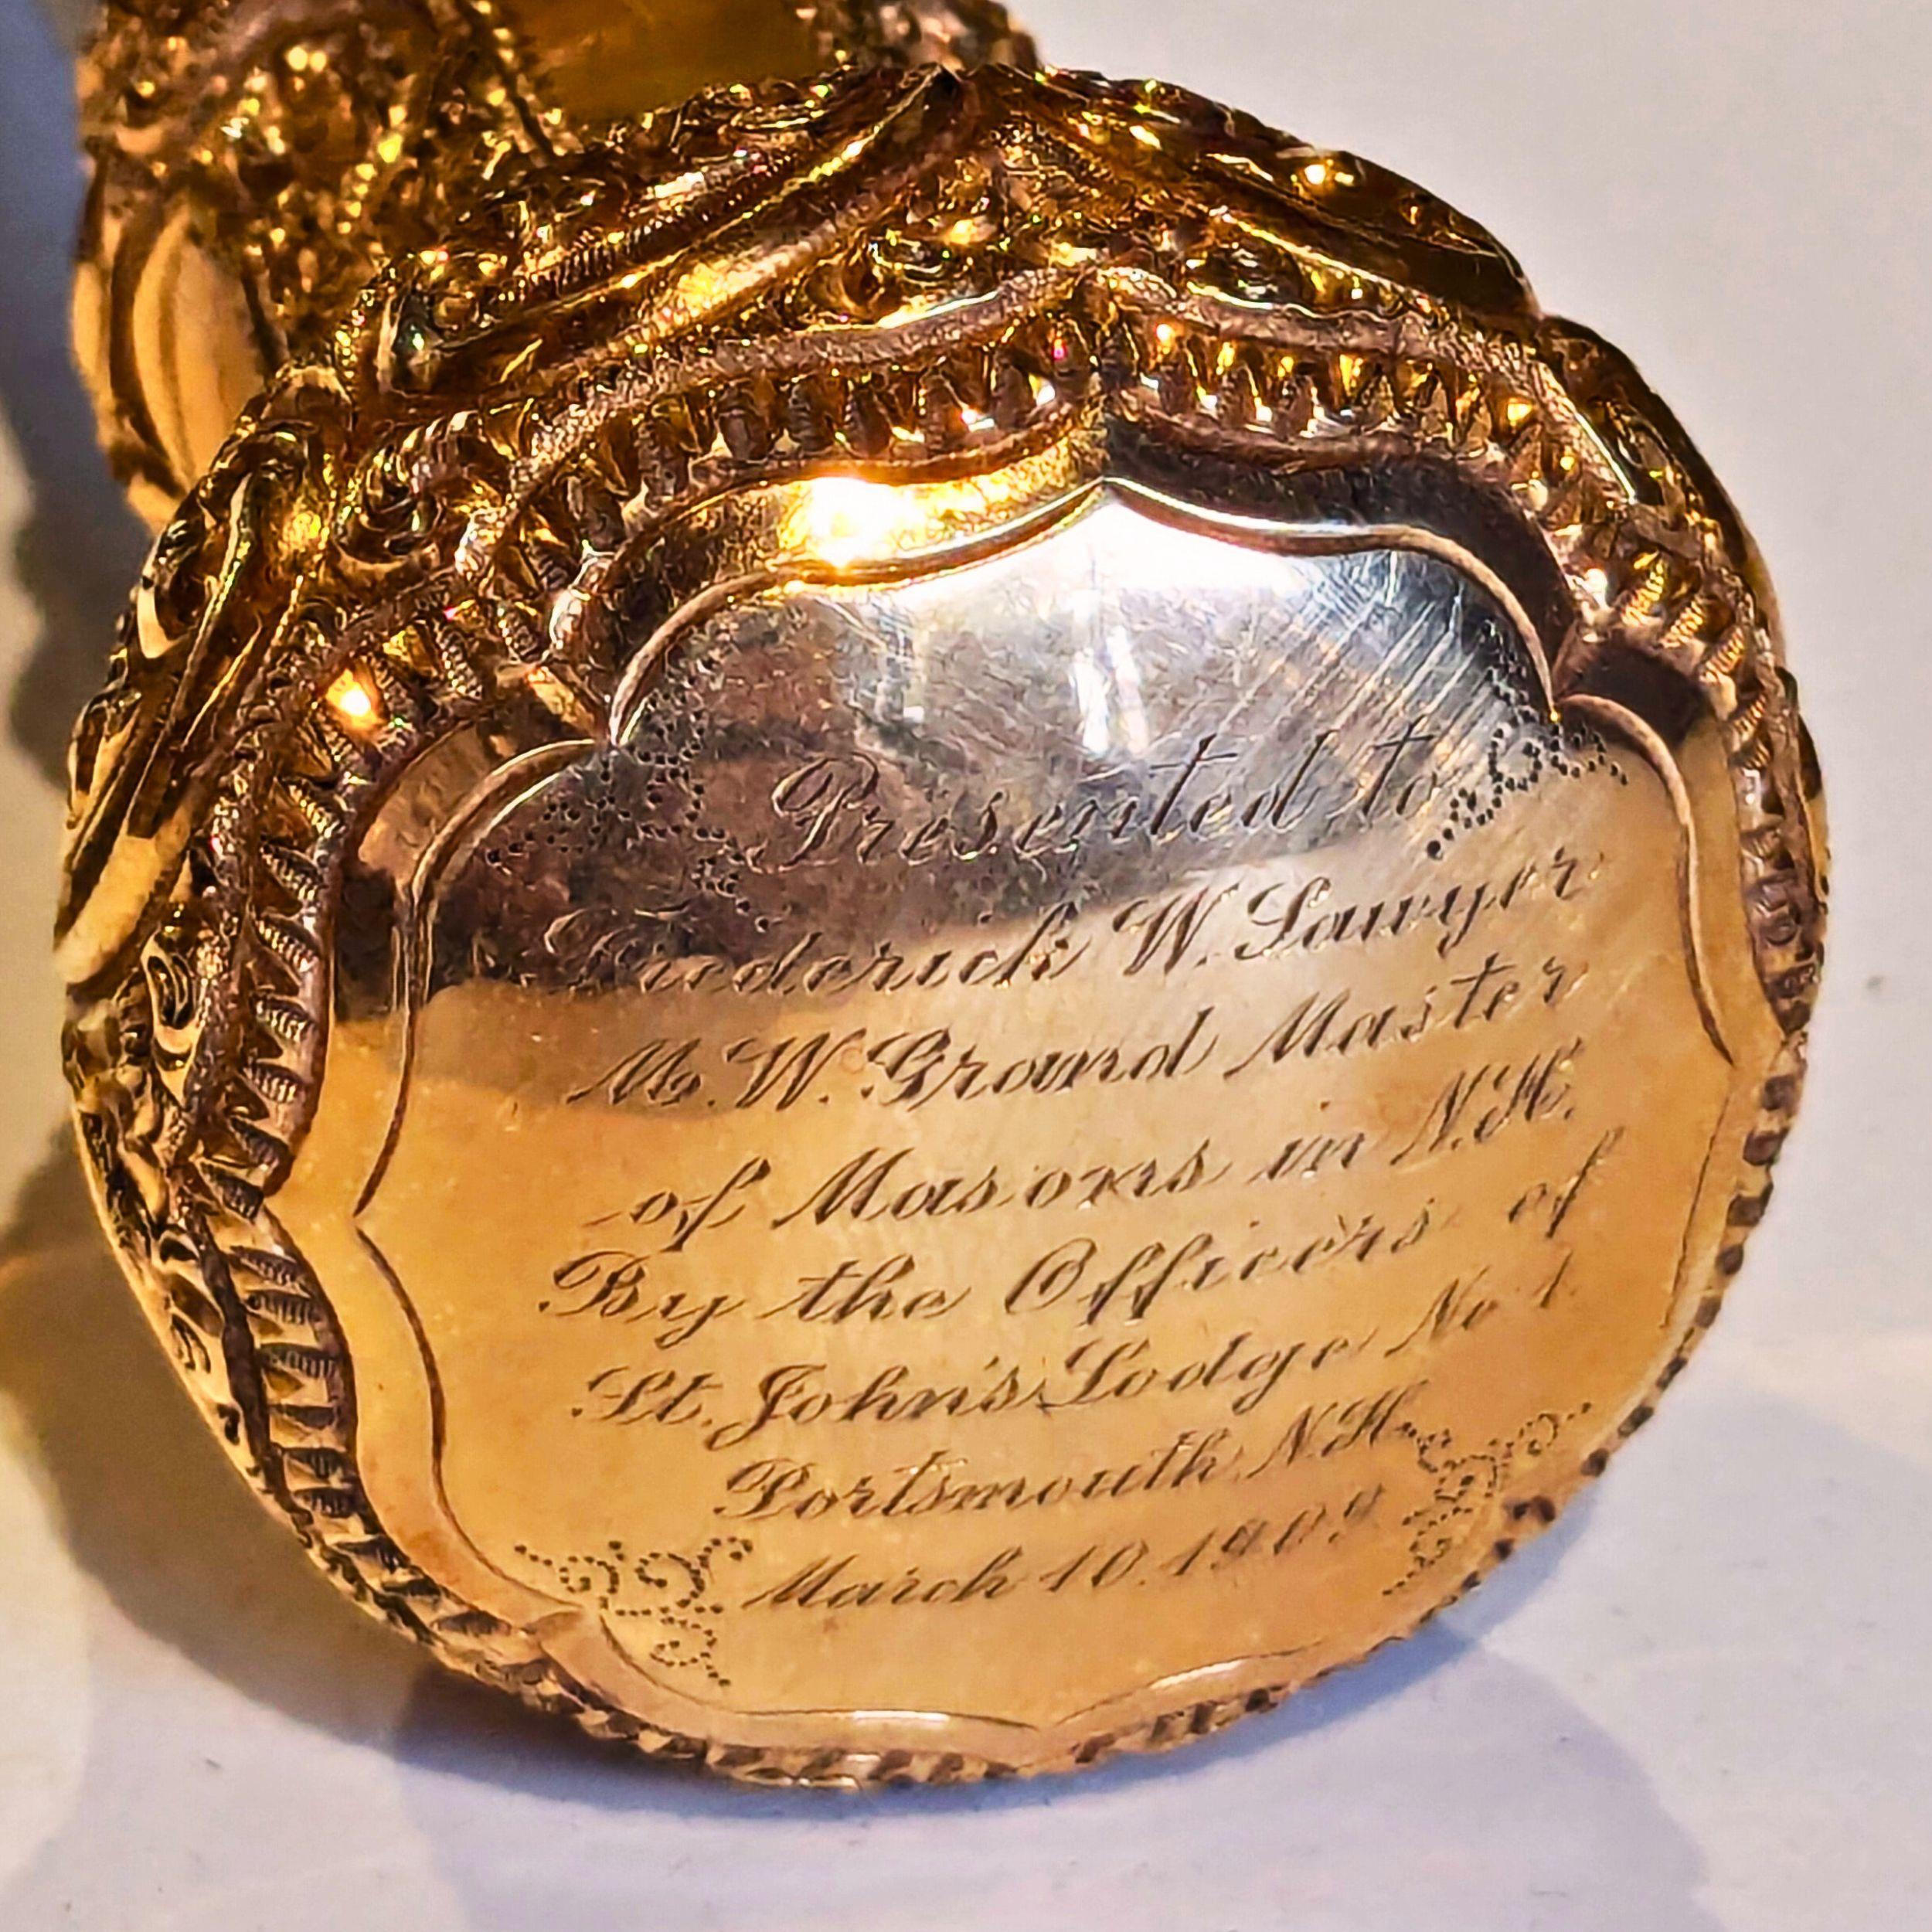 Presented to
Frederick W. Sawyer
M. W. Grand Master
of Masons in N.H.
By the Officers of
St. John's Lodge No 1.
Portsmouth N.H.
March 10. 1909